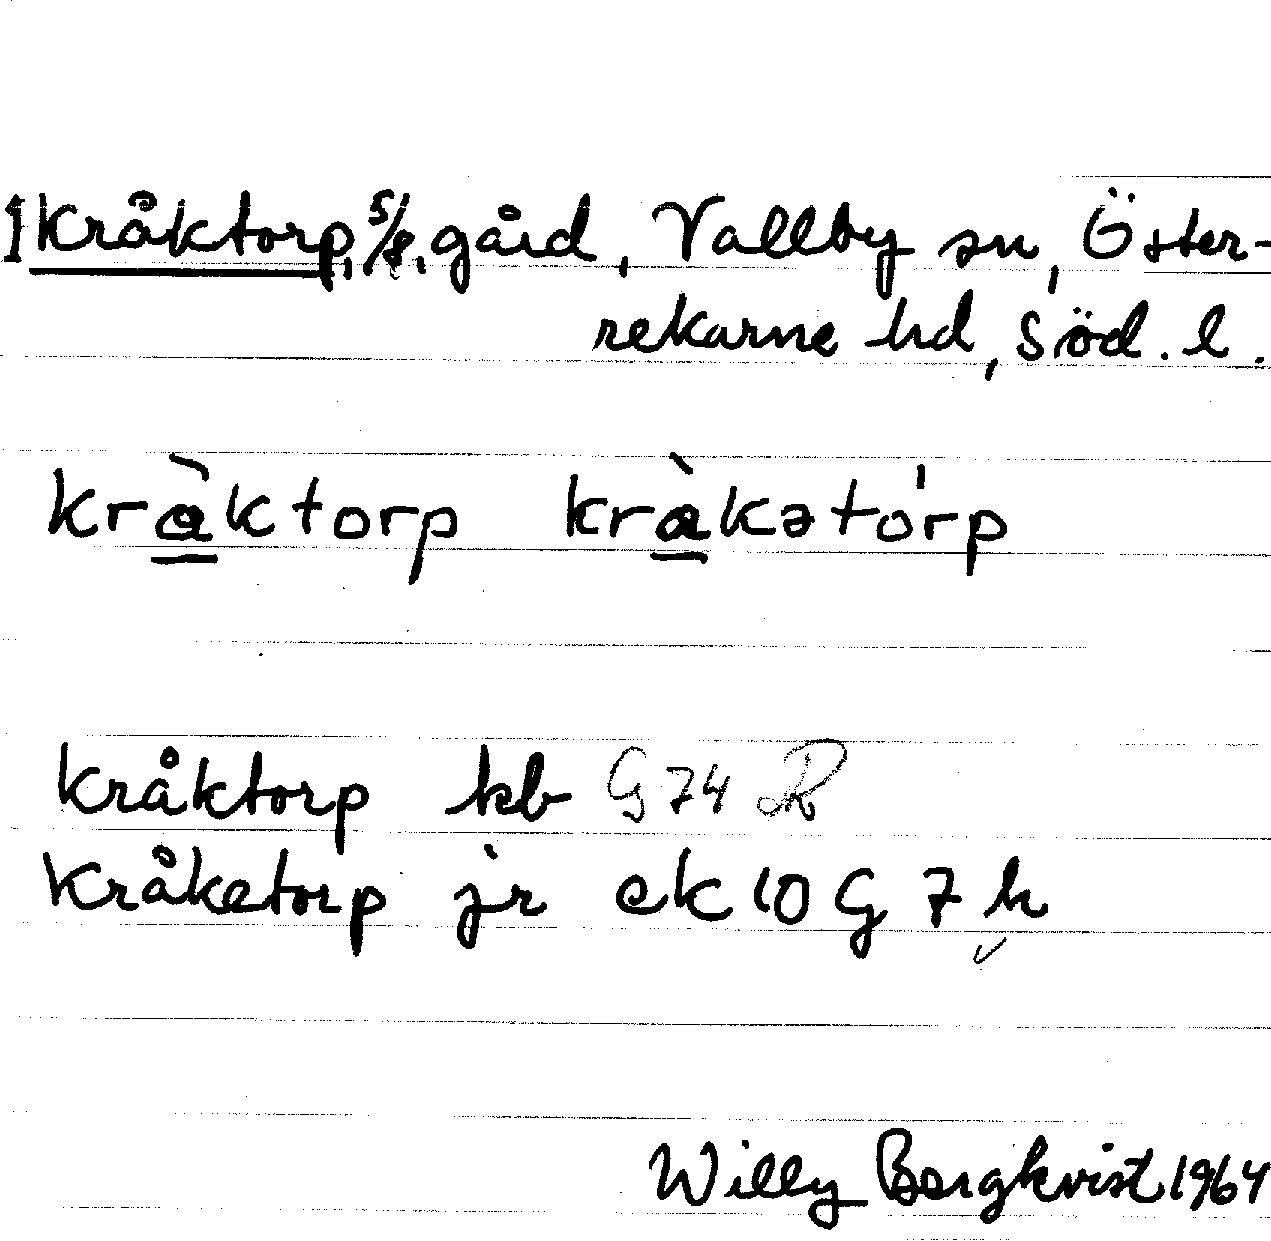 1 Kråktorp, 5/8, gård, Vallby sn, Öster-
rekarne hd, Söd. l.
kràktorp kràkətórp
Kråktorp kb G 74 R
Kråketorp jr ek 10 G 7 h
Willy Bergkvist 1964